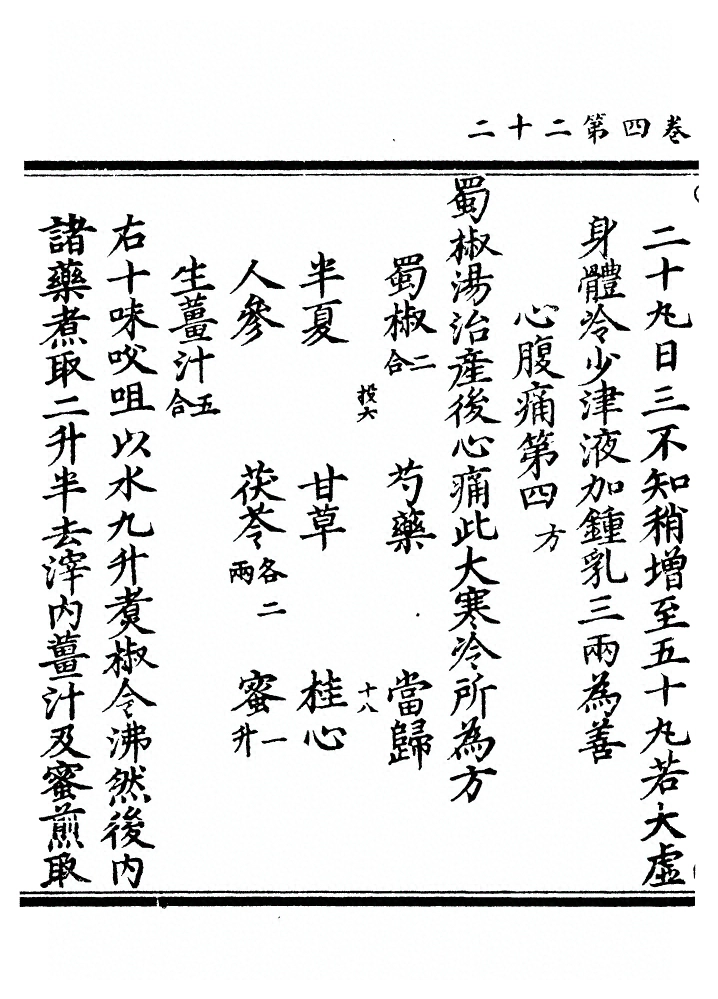 卷四第二十二
二十丸日三不知稍增至五十丸若大虛
身體冷少津液加鍾乳三兩為善
心腹痛第四 方
蜀椒湯治產後心痛此大寒冷所為方
蜀椒二合 芍藥 當歸
投六 十八
半夏 甘草 桂心
人參 茯苓各二兩 蜜一升
生薑汁五合
右十味㕮咀以水九升煑椒令沸然後內
諸藥煮取二升半去滓內薑汁及蜜煎取